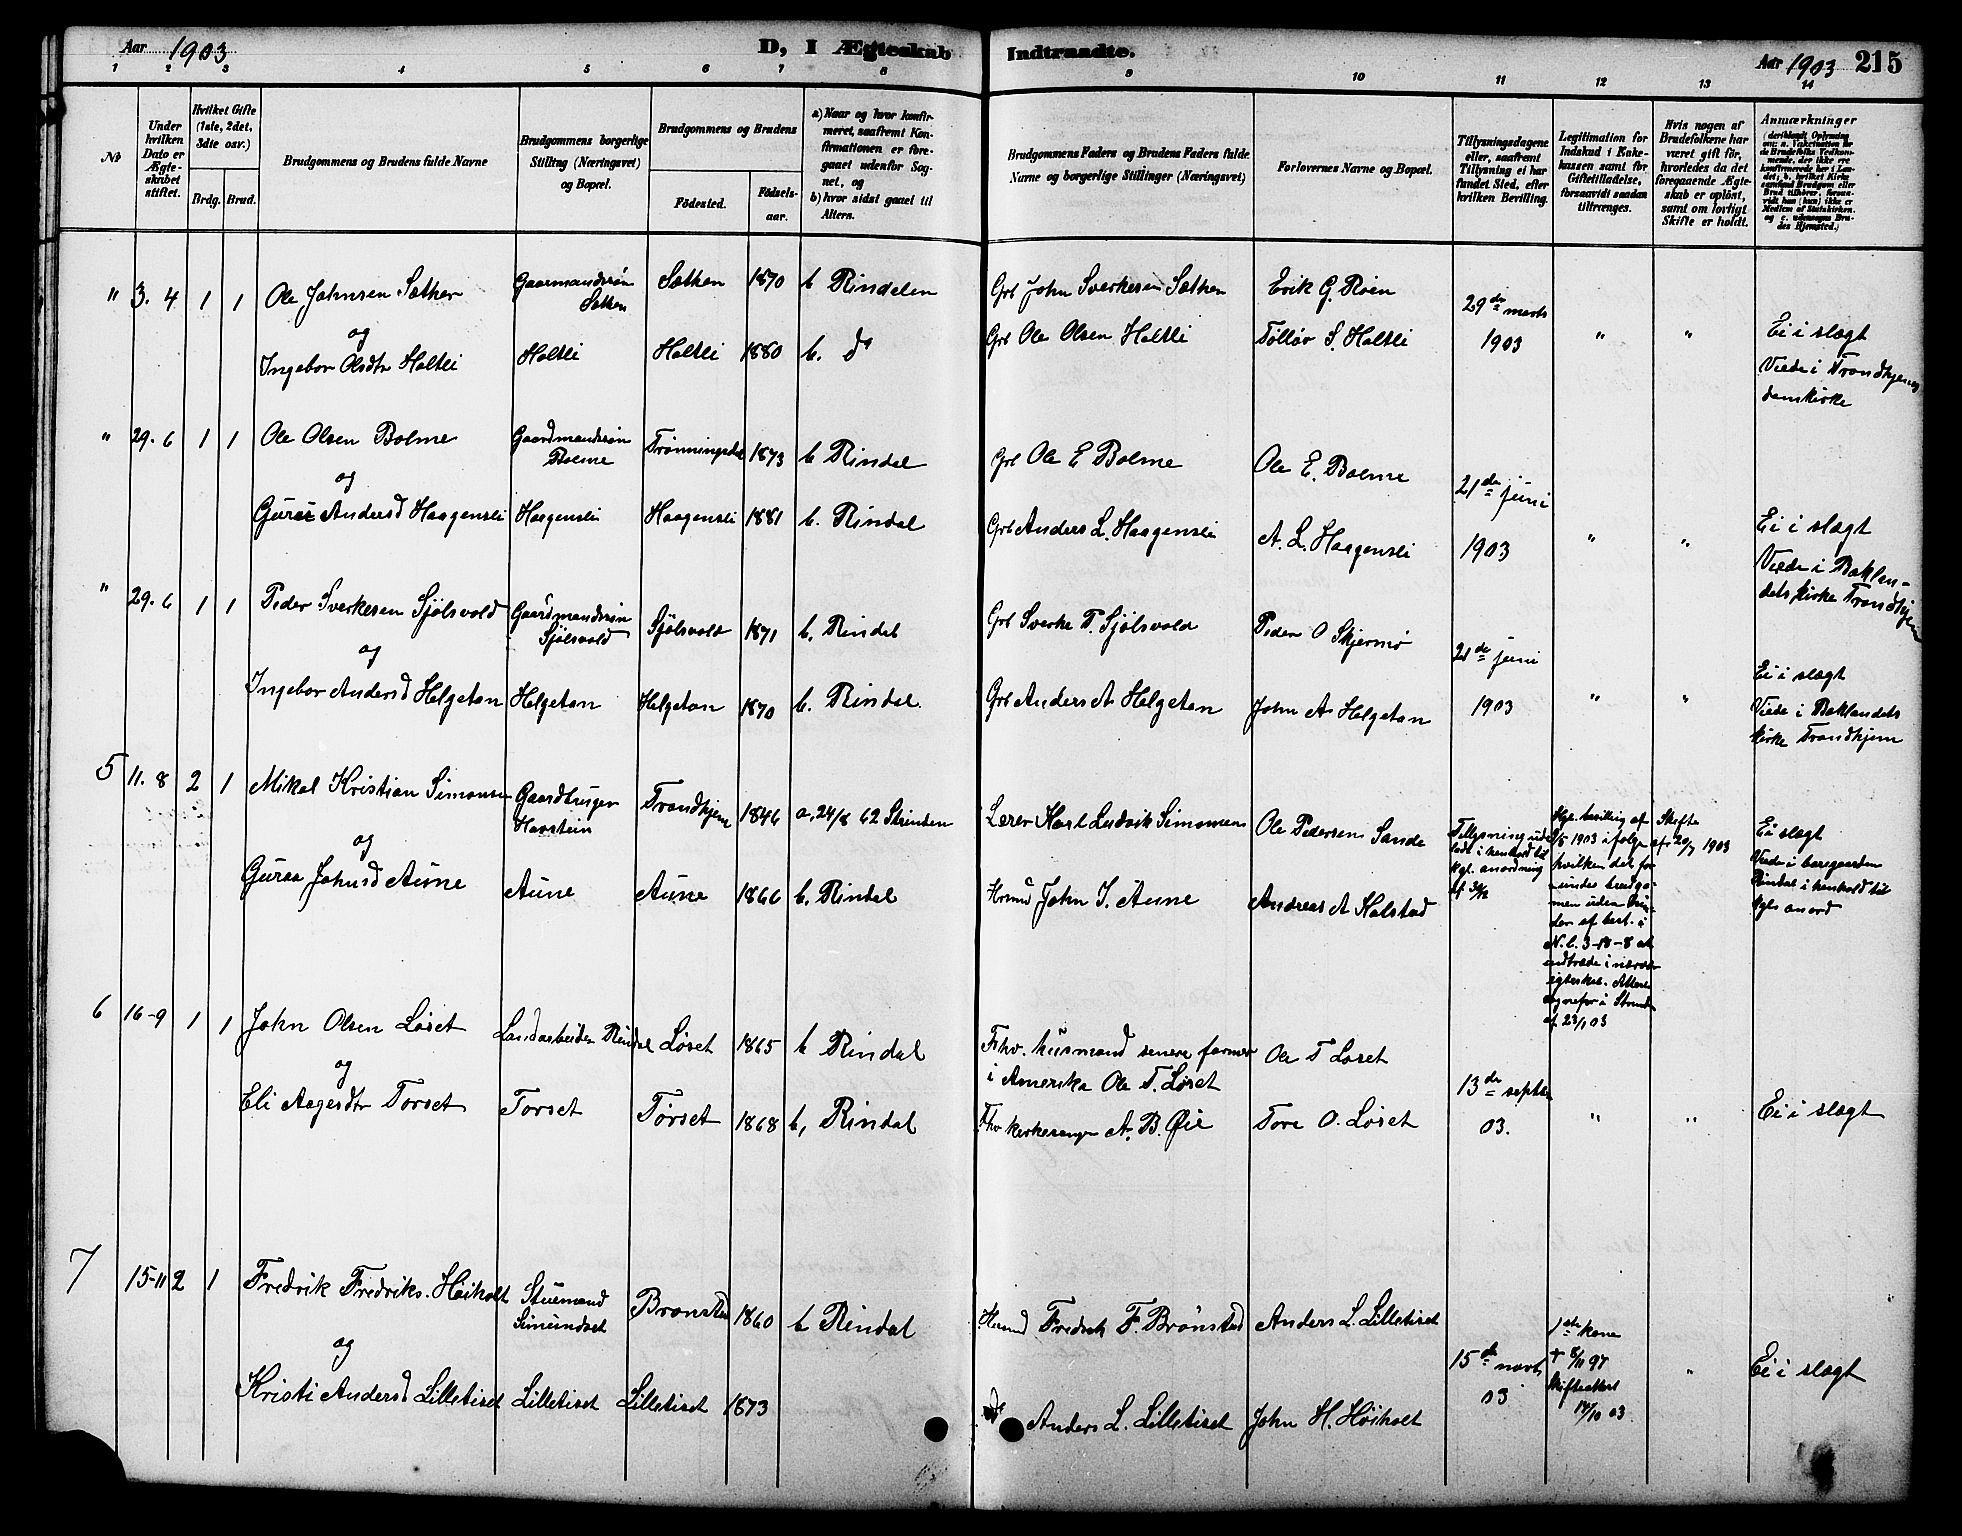 Aar 1903
D, I Ægteskab
Indtraadte.
Aar 1903 215
1 2 3 4 5 6 7 8 9 10 11 12 13 14
№
Under hvilken Dato er Ægteskabet stiftet.
Hvilket Gifte (1ste, 2det, 3dte osv.)
Brdg. Brud.
Brudgommens og Brudens fulde Navne
Brudgommens borgerlige Stilling (Næringsvei) og Bopæl.
Brudgommens og Brudens
Fødested.
Fødselsaar.
a) Naar og hvor konfirmeret, saafremt Konfirmationen er foregaaet udenfor Sognet, og
b) hvor sidst gaaet til Alters.
Brudgommens Faders og Brudens Faders fulde Navne og borgerlige Stillinger (Næringsvei)
Forlovernes Navne og Bopæl.
Tillysningsdagene eller, saafremt Tillysning ei har fundet Sted, efter hvilken Bevilling.
Legitimation for Indskud i Enkekassen samt for Giftetilladelse, forsaavidt saadan tiltrænges.
Hvis nogen af Brudefolkene har været gift før, hvorledes da det foregaaende Ægteskab er opløst, samt om lovligt Skifte er holdt.
Anmærkninger
" 3. 4 1 1 Ole Johnsen Sæther Gaarmandssøn Sæther Sæther 1870 b Rindalen Grb John Sverkesen Sæther Erik G. Røen 29de marts
og
Ingebor Olsdtr Holtli Holtli Holtli 1880 b. do Grb Ole Olsen Holtli Tollør S. Holtli 1903 " " Ei i slægt
Viede i Trondhjems
domkirke
" 29. 6 1 1 Ole Olsen Bolme Gaardmandssøn Bolme Trønningsdal 1873 b Rindal Grb Ole E Bolme Ole E. Bolme 21de juni
og
Guruε Andersd Haagensli Haagensli Haagensli 1881 b. Rindal Grb Anders L. Haagensli A. L. Haagensli 1903 " " Ei i slægt
Viede i Baklan-
dets kirke Trondhjem
" 29. 6 1 1 Peder Sverkesen Sjølsvold Gaardmandssøn Sjølsvold Sjølsvold 1871 b. Rindal Grb Sverke P. Sjølsvold Peder O Skjermo 21de juni
og
Ingebor Andersd Helgetøn Helgetøn Helgetøn 1870 b. Rindal Grb Anders A Helgetøn John A Helgetøn 1903 " " Ei i slægt
Viede i Baklandets
kirke Trondhjem
5 11. 8 2 1 Mikal Kristian Simonsen Gaardbruger Havstein Trondhjem 1846 a. 24/8 62 Strinden Lærer Karl Ludvik Simonsen Ole Pedersen Sande
og
Guraa Johnsd Aune Aune Aune 1866 b. Rindal Hsmd John I. Aune Andreas A Halstad
Tillysning ude
ladt i henhold til
kgl. anordning
Skifte
af 20/7 1903
Ei slægt
Viede i
Rindal i henhold til
kgl anord
Kgl. bevilling af
1903 i følge
hvilken det for
undes brudgo-
men uden hin-
der af best. i
N. L. 3-18-8 at
indtræde i
af 23/1 03
6 16-9 1 1 John Olsen Løset Landarbeider Rindal Løset 1865 b Rindal Fhv. husmand senere farmer
i Amerika Ole T. Løset Ole T Løset
og
Eli Aagesdtr Torset Torset Torset 1868 b, Rindal Fhv kirkesanger A. B. Øie Tore O. Løset 13de septbr 03. " " Ei i slægt
7 15-11 2 1 Fredrik Fredriks. Høiholt Stuemand Simundset Brønstad 1860 b Rindal Husmd Fredrik F. Brønstad Anders L. Lilletiset
og
Kristi Andersd Lilletiset Lilletiset Lilletiset 1873 do Anders L. Lilletiset John H. Høiholt
15de novb 03
1ste kone
† 8/11 97
skifteattest
14/10 03
" Ei i slægt